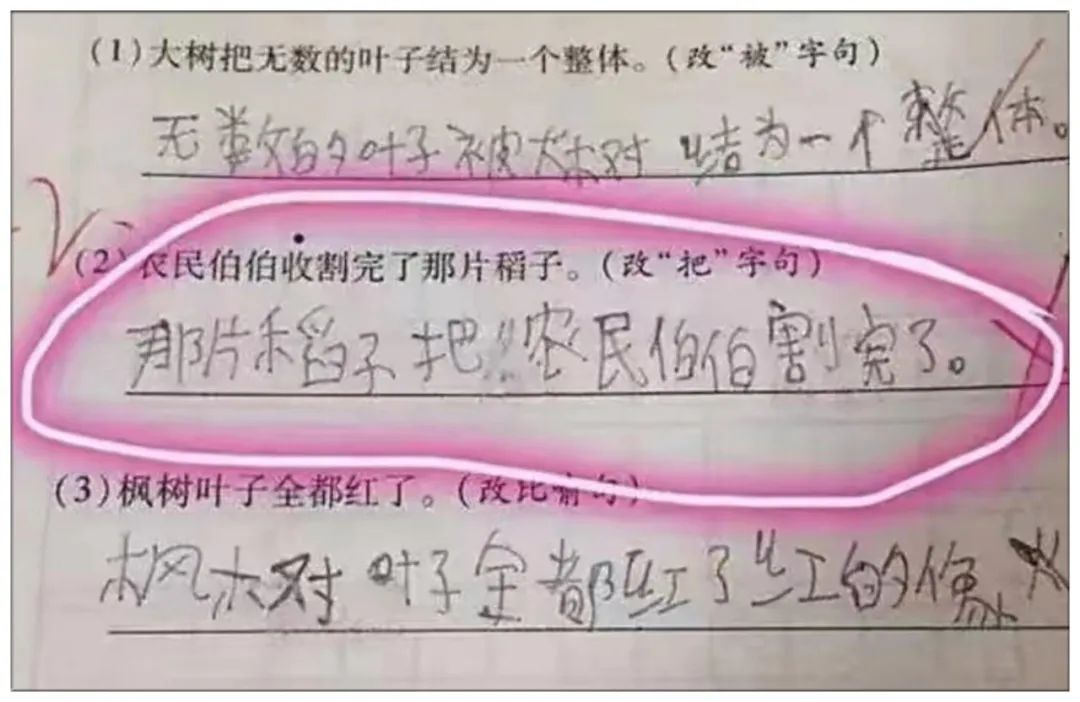 (1)大树把无数的叶子结为一个整体。(改“被”字句)
无数的叶子被大树结为一个整体。
(2)农民伯伯收割完了那片稻子。(改“把”字句)
那片稻子把农民伯伯割完了。
(3)枫树叶子全都红了。(改比喻句)
枫树叶子全都红了红的像火